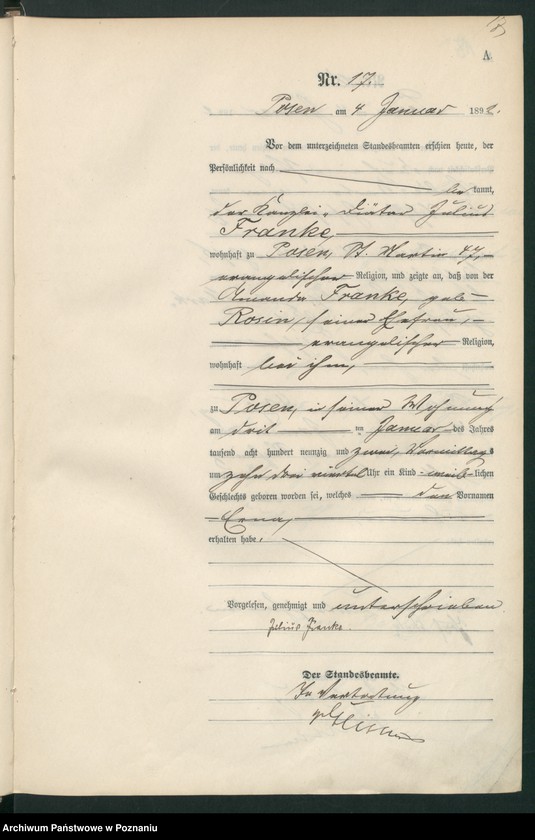 A
Nr. 17.
Posen am 4 Januar 1892.
Vor dem unterzeichneten Standesbeamten erschien heute, der
Persönlichkeit nach
bekannt,
der Kanzlei-Diätar Julius
Franke,
wohnhaft zu Posen, St. Martin 47,
evangelischer Religion, und zeigte an, daß von der
Amanda Franke, geb.
Rosin, seiner Ehefrau,
evangelischer Religion,
wohnhaft bei ihm,
zu Posen, in seiner Wohnung
am drit ten Januar des Jahres
tausend acht hundert neunzig und zwei, Vormittags
um zehn drei viertel Uhr ein Kind weib lichen
Geschlechts geboren worden sei, welches den Vornamen
Erna,
erhalten habe.
Vorgelesen, genehmigt und unterschrieben
Julius Franke.
Der Standesbeamte.
In Vertretung
Archiwum Państwowe w Poznaniu